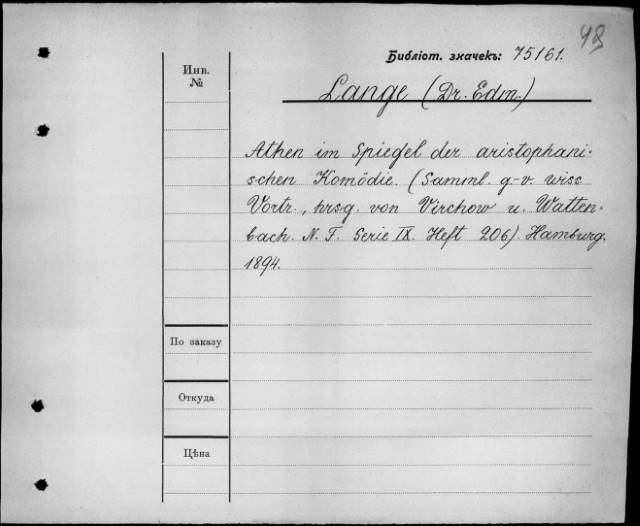 48
Библіот. значекъ: 75161.
Инв.
№
Lange (Dr. Edm.)
Athen im Spiegel der aristophani-
schen Komödie. (Samml. g.-v. wiss
Vortr., hrsg. von Virchow u. Watten-
bach. N. F. Serie IX. Heft 206). Hamburg.
1894.
По заказу
Откуда
Цѣна